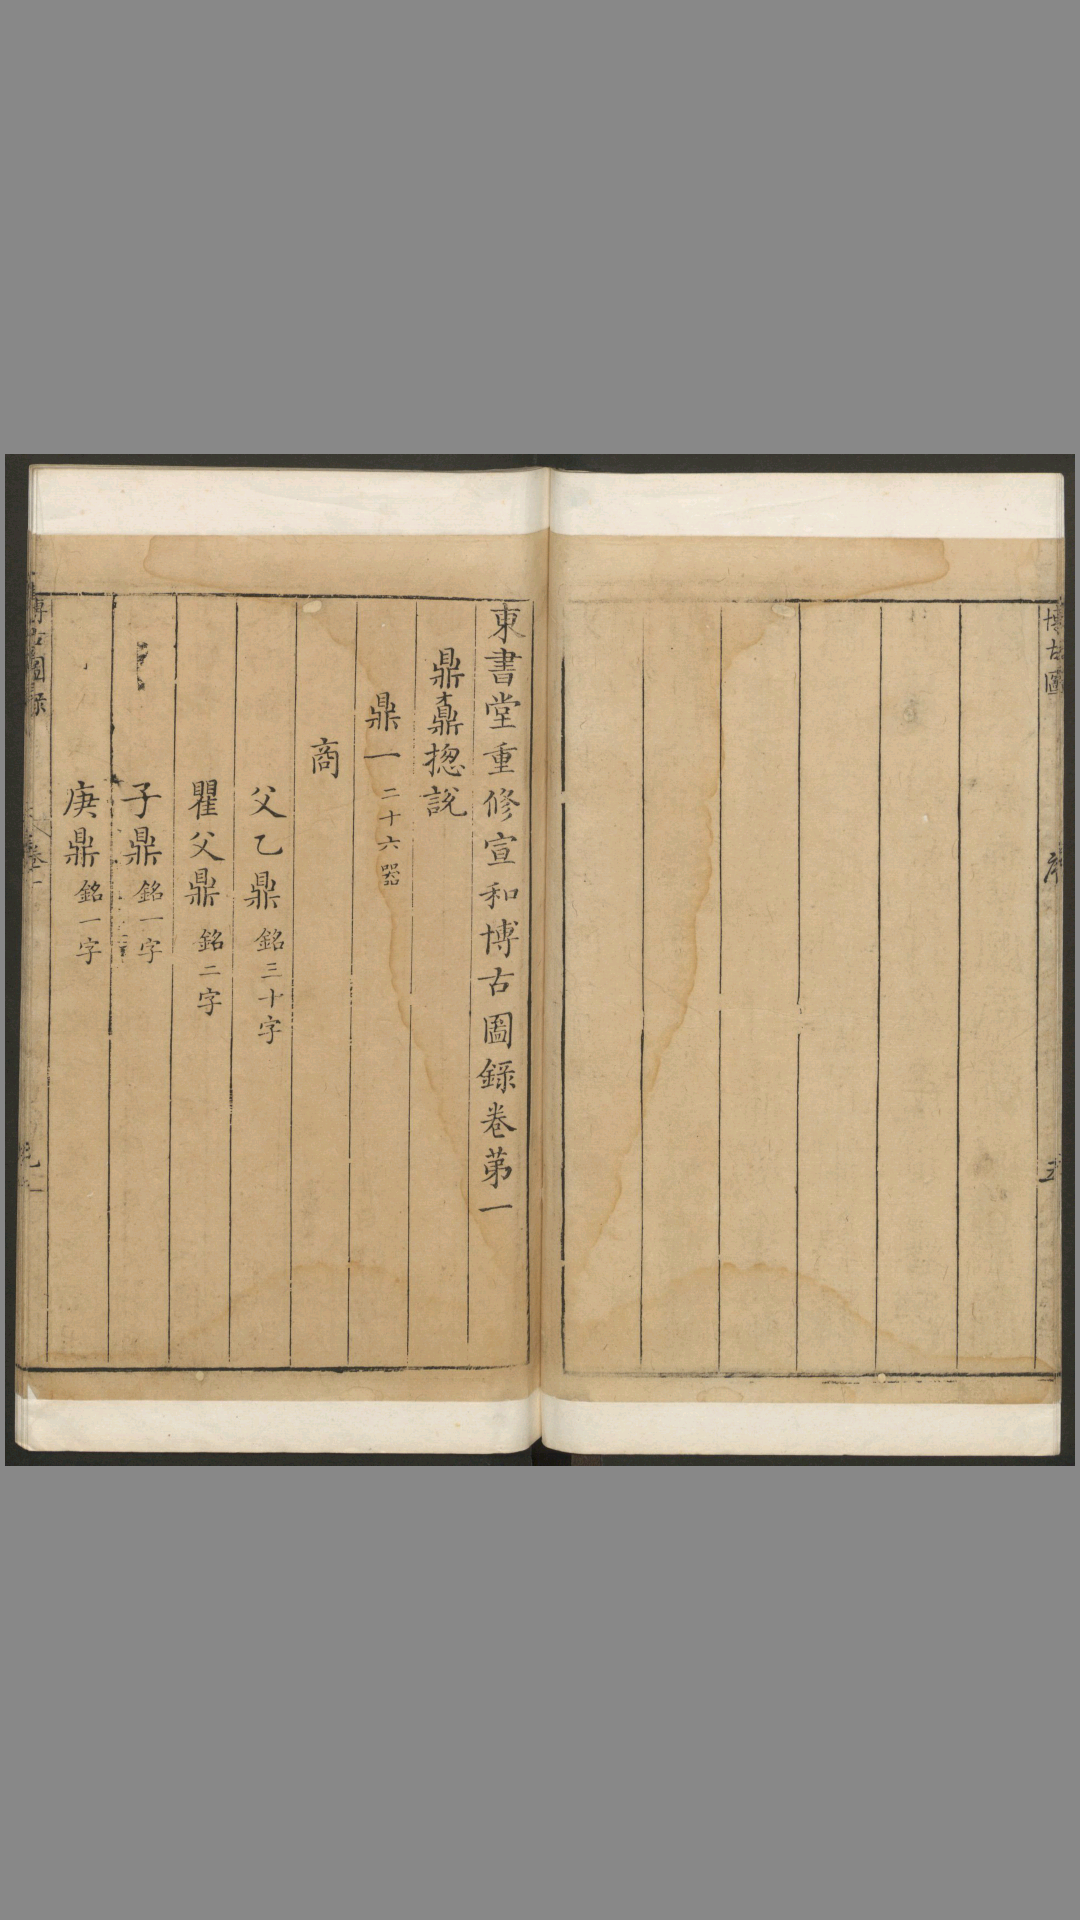 博古圖
序
五
東書堂重修宣和博古圖錄卷第一
鼎鼒揔說
鼎一 二十六器
商
父乙鼎 銘三十字
瞿父鼎 銘二字
子鼎 銘一字
庚鼎 銘一字
博古圖錄
卷一